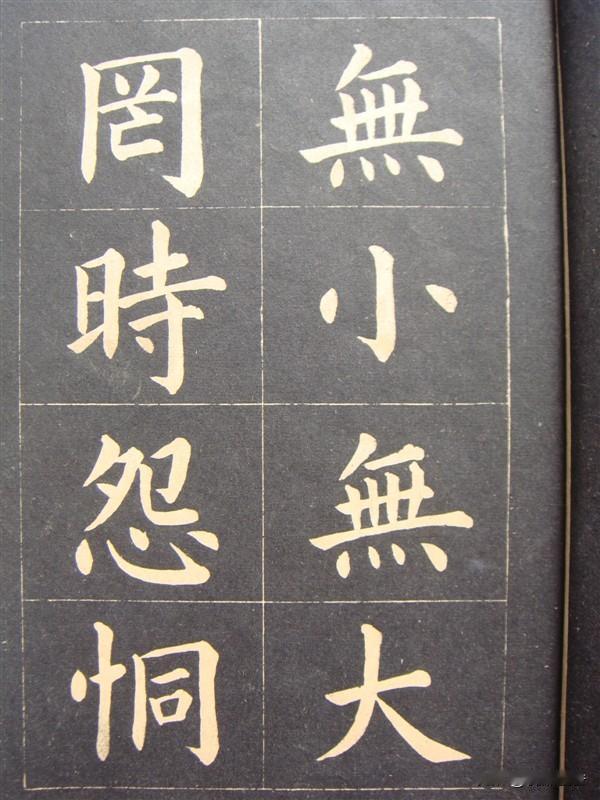 無小無大
罔時怨恫